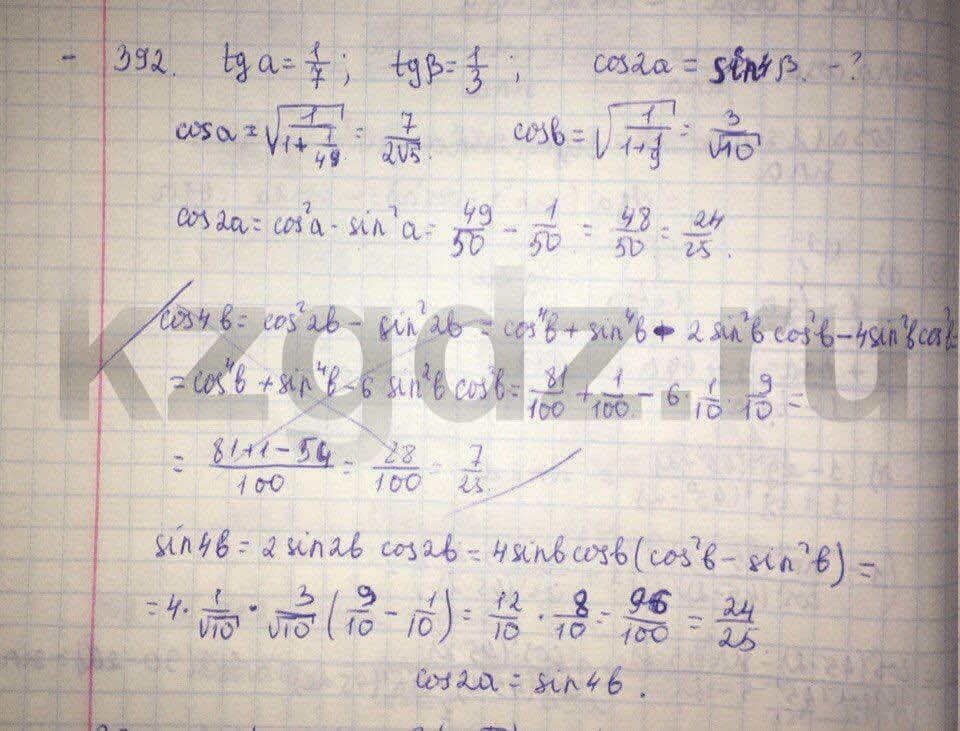 - 392. tg a = 1/7; tg β = 1/3; cos2a = sin4β - ?
cos a = √(1/(1+1/49)) = 7/(2√5). cos b = √(1/(1+1/9)) = 3/√10
cos2a = cos²a - sin²a = 49/50 - 1/50 = 48/50 = 24/25.
cos4b = cos²2b - sin²2b = cos⁴b + sin⁴b - 2 sin²b cos²b - 4sin²b cos²b =
= cos⁴b + sin⁴b - 6 sin²b cos²b = 81/100 + 1/100 - 6 · 1/10 · 9/10 =
= (81+1-54)/100 = 28/100 = 7/25.
sin4b = 2 sin2b cos2b = 4sinb cosb (cos²b - sin²b) =
= 4 · 1/√10 · 3/√10 (9/10 - 1/10) = 12/10 · 8/10 = 96/100 = 24/25
cos2a = sin4b.
kzgdz.ru